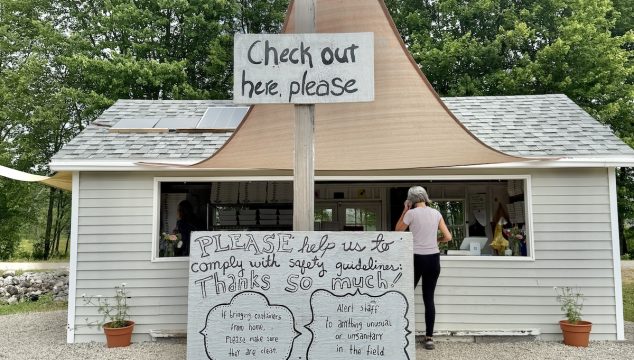 Check out
here, please
PLEASE help us to
comply with safety guidelines:
Thanks so much!
If bringing containers
from home,
Please make sure
they are clean.
Alert staff
to anything unusual
or unsanitary
in the field.